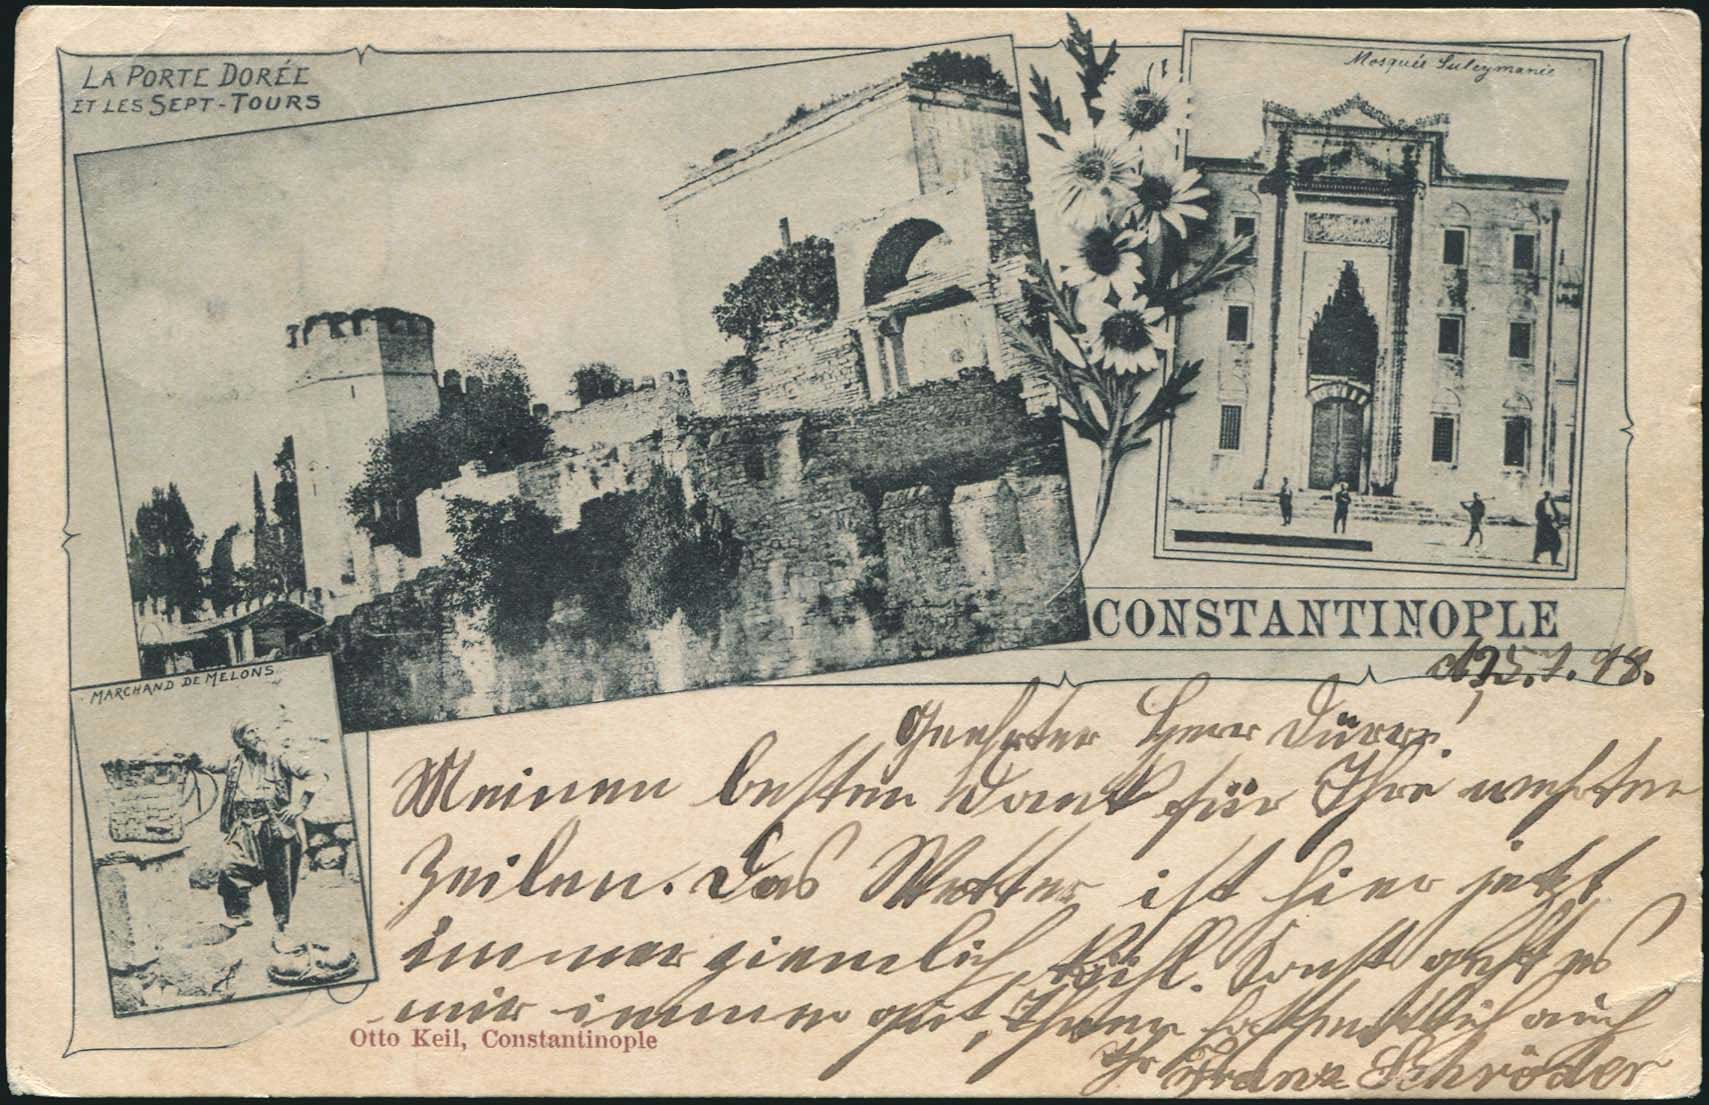 LA PORTE DORÉE
ET LES SEPT-TOURS
Mosquée Suleymanié
CONSTANTINOPLE
MARCHAND DE MELONS
25.1.98.
Geehrter Herr Dürr!
Meinen besten Dank für Ihre wehrten
Zeilen. Das Wetter ist hier jetzt
immer ziemlich kühl. Sonst geht es
mir immer gut, Ihnen hoffentlich auch
Ihr Franz Schröder
Otto Keil, Constantinople